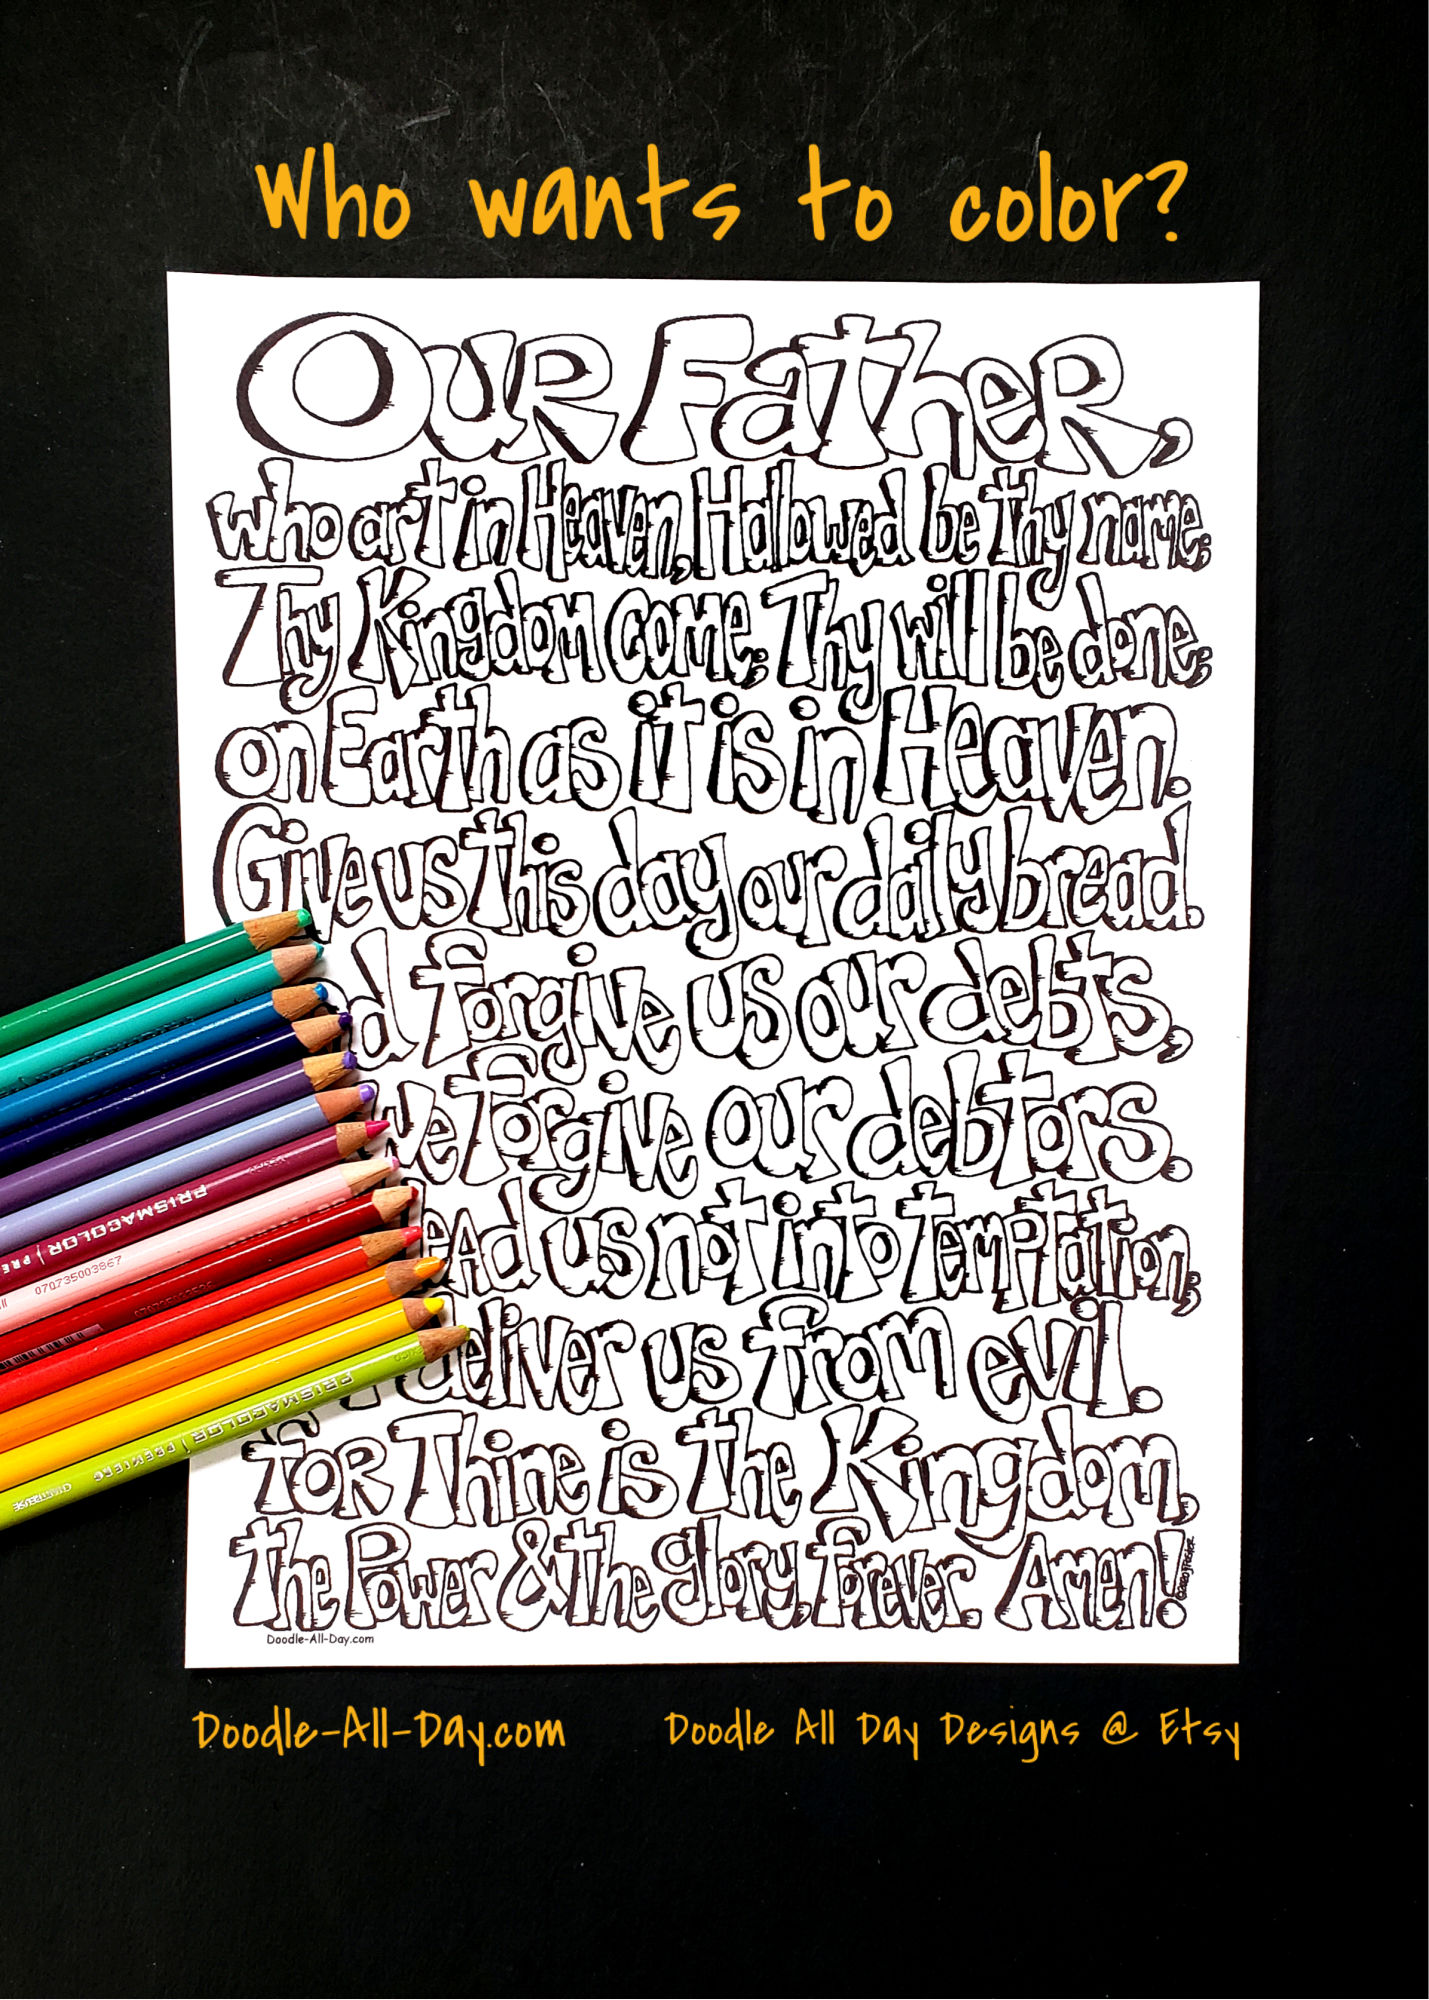 Who wants to color?
Our Father,
who art in Heaven, Hallowed be thy name;
Thy Kingdom come; Thy will be done;
on Earth as it is in Heaven.
Give us this day our daily bread.
forgive us our debts,
we forgive our debtors.
us not into temptation,
deliver us from evil.
for Thine is the Kingdom,
the Power & the glory, forever. Amen!
©2020 JFoster
Doodle-All-Day.com
PRISMACOLOR | PRE
070735003867
PRISMACOLOR | PREMIER
CHARTREUSE
Doodle-All-Day.com Doodle All Day Designs @ Etsy